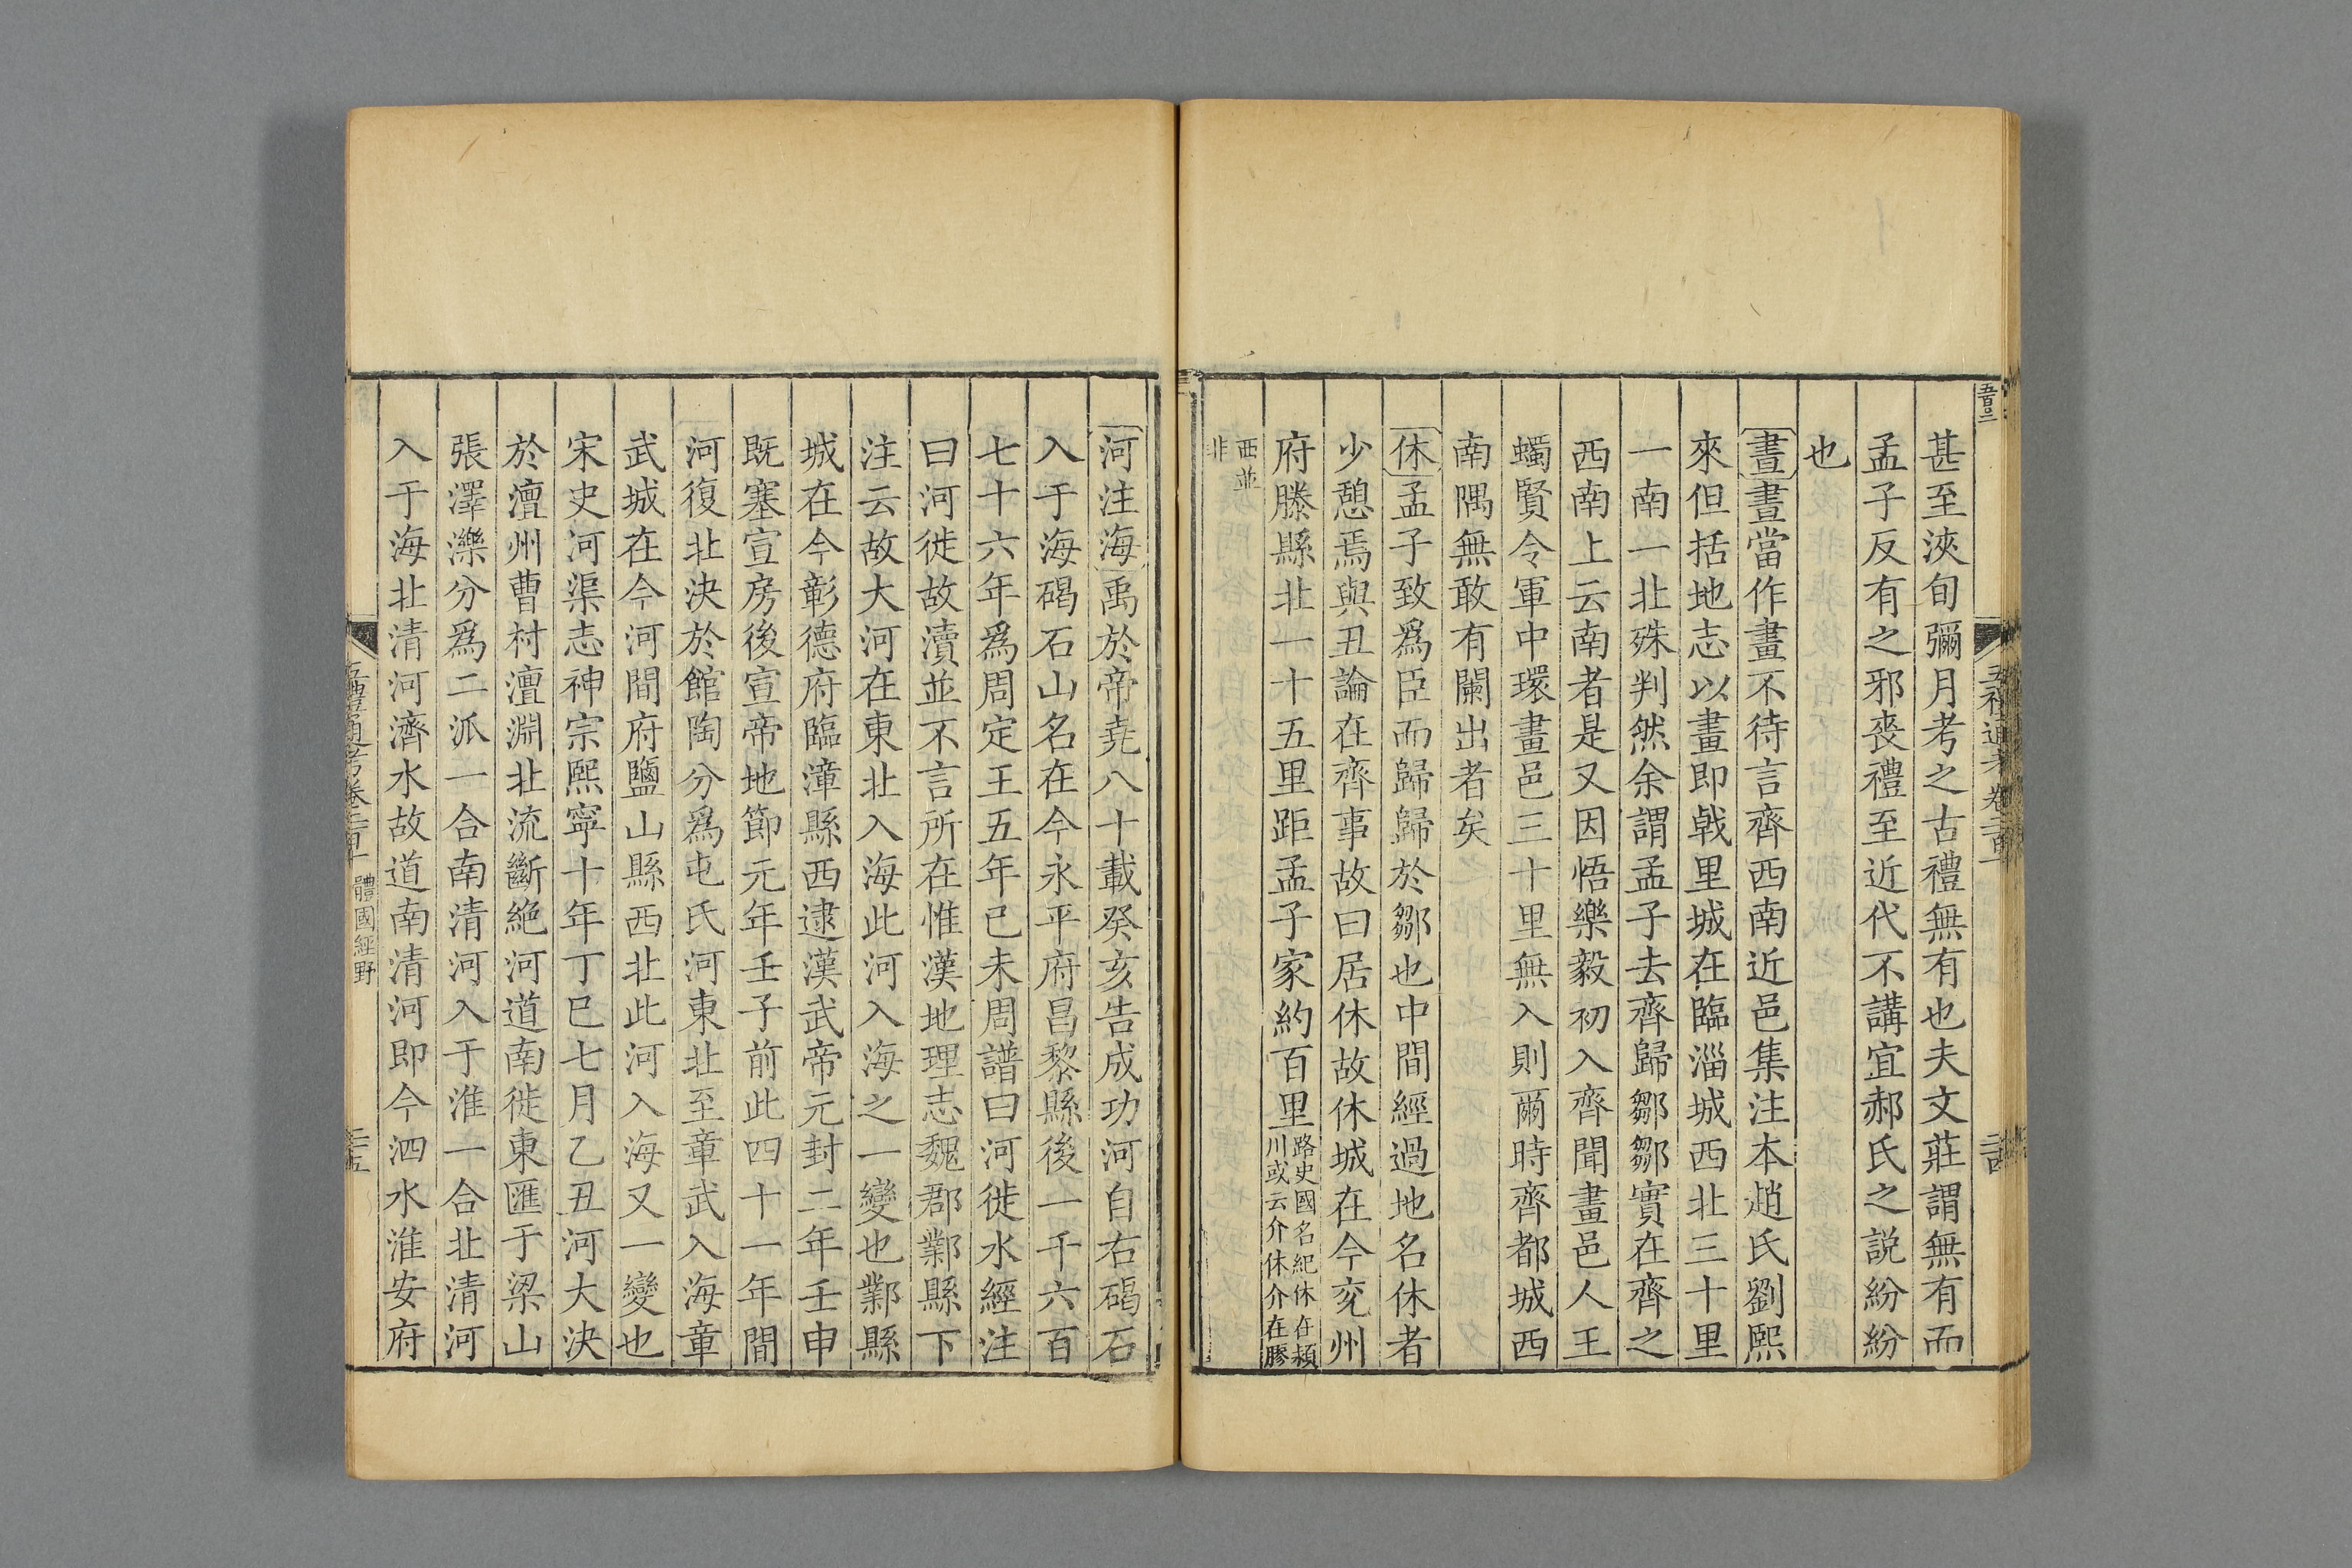 甚至浹旬彌月考之古禮無有也夫文莊謂無有而
孟子反有之邪喪禮至近代不講宜郝氏之説紛紛
也
晝晝當作畫不待言齊西南近邑集注本趙氏劉熙
來但括地志以畫即戟里城在臨淄城西北三十里
一南一北殊判然余謂孟子去齊歸鄒鄒實在齊之
西南上云南者是又因悟樂毅初入齊聞畫邑人王
蠋賢令軍中環畫邑三十里無入則爾時齊都城西
南隅無敢有闌出者矣
休孟子致爲臣而歸歸於鄒也中間經過地名休者
少憩焉與丑論在齊事故曰居休故休城在今兖州
府滕縣北一十五里距孟子家約百里路史國名紀休在潁
川或云介休介在膠
西並
非
河注海禹於帝堯八十載癸亥告成功河自右碣石
入于海碣石山名在今永平府昌黎縣後一千六百
七十六年爲周定王五年己未周譜曰河徙水經注
曰河徙故瀆並不言所在惟漢地理志魏郡鄴縣下
注云故大河在東北入海此河入海之一變也鄴縣
城在今彰德府臨漳縣西逮漢武帝元封二年壬申
既塞宣房後宣帝地節元年壬子前此四十一年間
河復北決於館陶分爲屯氏河東北至章武入海章
武城在今河間府鹽山縣西北此河入海又一變也
宋史河渠志神宗熙寧十年丁巳七月乙丑河大決
於澶州曹村澶淵北流斷絶河道南徙東匯于梁山
張澤濼分爲二派一合南清河入于淮一合北清河
入于海北清河濟水故道南清河即今泗水淮安府
五禮通考卷二百十 體國經野
二十五